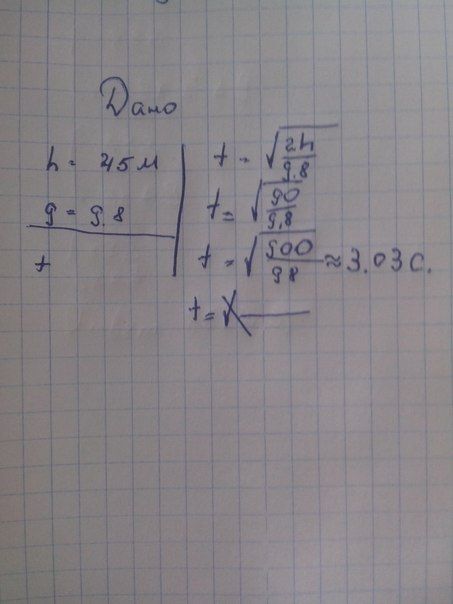 Дано
h = 45 м
g = 9.8
t
t = √2h/9.8
t = √90/9,8
t = √900/98 ≈ 3.03 с.
t = √